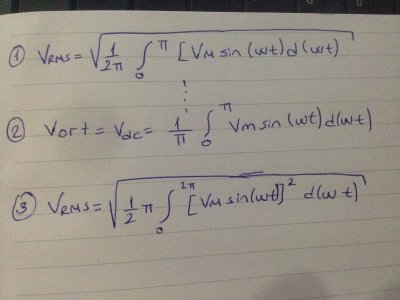 ① VRMS = √(1/2π ∫₀^π [VM sin(wt) d(wt))
② Vort = Vdc = 1/π ∫₀^π Vm sin(wt) d(wt)
③ VRMS = √(1/2 π ∫₀^2π [VM sin(wt)]² d(wt))